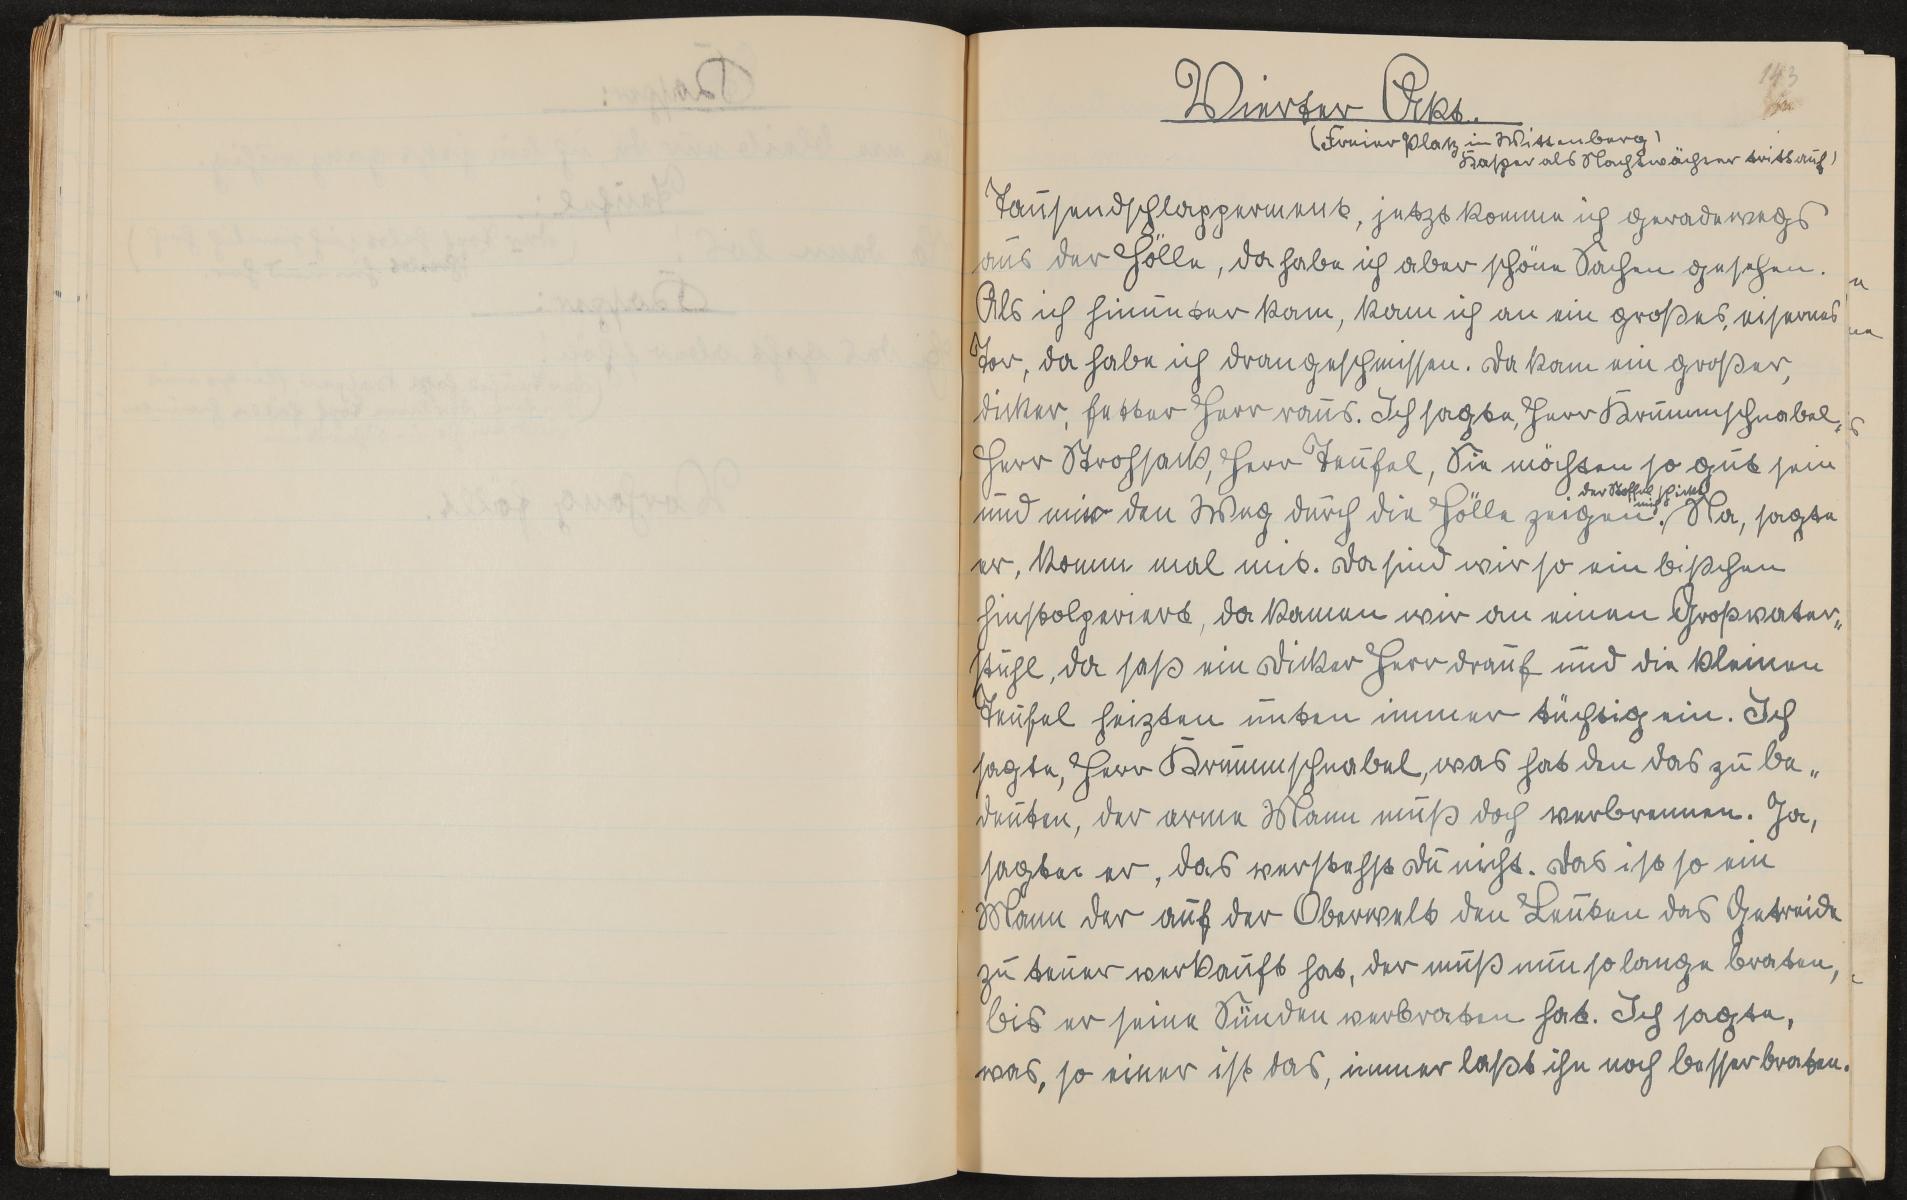 143
Vierter Akt.
(Freier Platz in Wittenberg)
Kasper als Nachtwächter tritt auf)
Tausendschlapperment, jetzt komme ich geradewegs
aus der Hölle, da habe ich aber schöne Sachen gesehen.
Als ich hinunter kam, kam ich an ein großes, eisernes
Tor, da habe ich drangeschmissen. Da kam ein großer,
dicker, fetter Herr raus. Ich sagte, Herr Krummschnabel,
Herr Strohsack, Herr Teufel, Sie möchten so gut sein
der Stoffel schickt
mich
und mir den Weg durch die Hölle zeigen. Na, sagte
er, komm mal mit. Da sind wir so ein bißchen
hinstolperiert, da kamen wir an einen Großvater„
stuhl, da saß ein dicker Herr drauf und die kleinen
Teufel heizten unten immer tüchtig ein. Ich
sagte, Herr Krummschnabel, was hat den das zu be„
deuten, der arme Mann muß doch verbrennen. Ja,
sagte er, das verstehst du nicht. Das ist so ein
Mann der auf der Oberwelt den Leuten das Getreide
zu teuer verkauft hat, der muß nun so lange braten,
bis er seine Sünden verbraten hat. Ich sagte,
was, so einer ist das, immer laßt ihn noch besser braten.